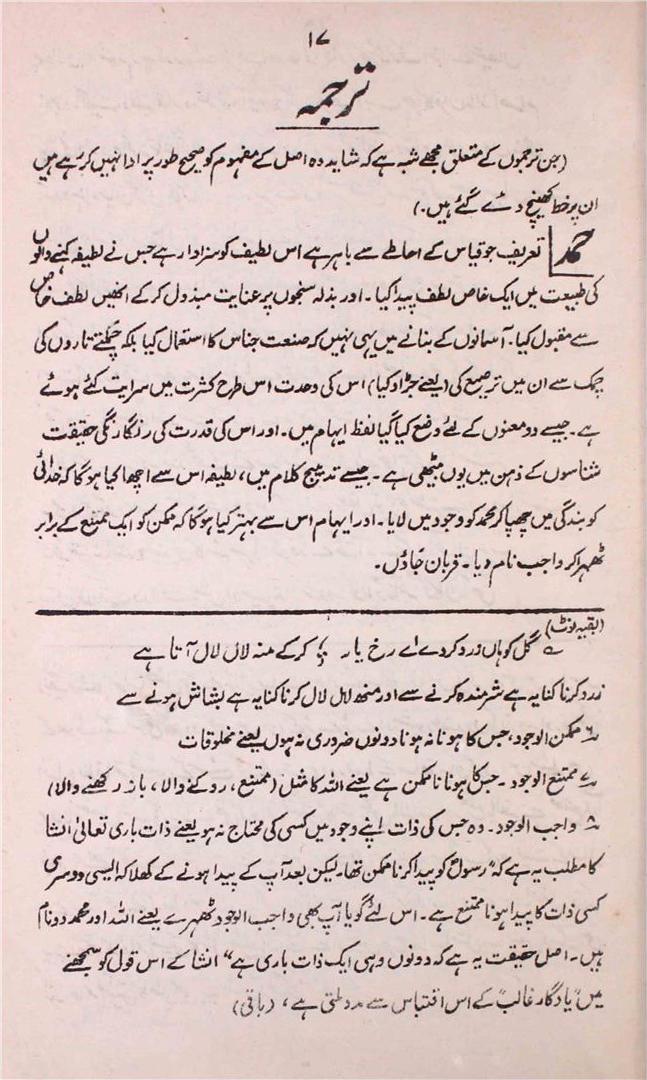 ۱۷
ترجمہ
(جن ترجموں کے متعلق مجھے شبہ ہے کہ شاید وہ اصل کے مفہوم کو صحیح طور پر ادا نہیں کر رہے ہیں
ان پر خط کھینچ دئے گئے ہیں۔)
حمد تعریف جو قیاس کے احاطے سے باہر ہے اس لطیف کو سزادار ہے جس نے لطیفہ کہنے والوں
کی طبیعت میں ایک خاص لطف پیدا کیا۔ اور بذلہ سنجوں پر عنایت مبذول کر کے انھیں لطف خاص
سے مقبول کیا۔ آسمانوں کے بنانے میں یہی نہیں کہ صنعت جناس کا استعمال کیا بلکہ چمکتے تاروں کی
چمک سے ان میں ترصیع کی (یعنے جڑاؤ کیا) اس کی وحدت اس طرح کثرت میں سرایت کئے ہوئے
ہے۔ جیسے دو معنوں کے لئے وضع کیا گیا لفظ ایہام میں۔ اور اس کی قدرت کی رنگارنگی حقیقت
شناسوں کے ذہن میں یوں بیٹھی ہے۔ جیسے تدبیج کلام میں، لطیفہ اس سے اچھا کیا ہوگا کہ خدائی
کو بندگی میں چھپا کر محمد کو وجود میں لایا۔ اور ایہام اس سے بہتر کیا ہوگا کہ ممکن کو ایک ممتنع کے برابر
ٹھہرا کر واجب نام دیا۔ قربان جاؤں۔
(بقیہ نوٹ)
؎ گل کو ہاں زرد کر دے اے رخ یار ؛ کر کے منہ لال لال آتا ہے
زرد کرنا کنایہ ہے شرمندہ کرنے سے اور منھ لال لال کرنا کنایہ ہے بشاش ہونے سے
۶؎ ممکن الوجود، جس کا ہونا نہ ہونا دونوں ضروری نہ ہوں یعنے مخلوقات
۷؎ ممتنع الوجود۔ جس کا ہونا ناممکن ہے یعنے اللہ کا مثل (ممتنع، روکنے والا، باز رکھنے والا)
۸؎ واجب الوجود۔ وہ جس کی ذات اپنے وجود میں کسی کی محتاج نہ ہو یعنے ذات باری تعالیٰ انشا
کا مطلب یہ ہے کہ "رسولؐ کو پیدا کرنا ممکن تھا۔ لیکن بعد آپ کے پیدا ہونے کے کھلا کہ ایسی دوسری
کسی ذات کا پیدا ہونا ممتنع ہے۔ اس لئے گویا آپ بھی واجب الوجود ٹھہرے یعنے اللہ اور محمد دو نام
ہیں۔ اصل حقیقت یہ ہے کہ دونوں وہی ایک ذات باری ہے" انشا کے اس قول کو سمجھنے
میں "یادگار غالب" کے اس اقتباس سے مدد ملتی ہے، (باقی)